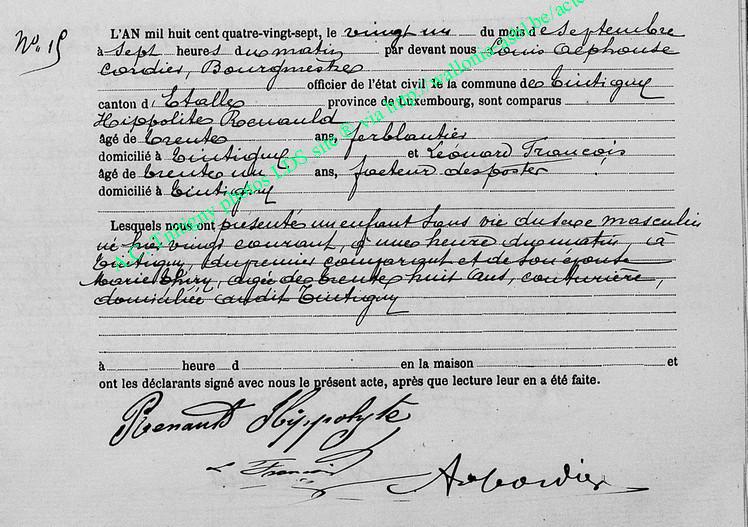 No. 15
L'AN mil huit cent quatre-vingt-sept, le vingt un du mois de Septembre
à Sept heures du matin par devant nous Louis Alphonse
Cordier, Bourgmestre
officier de l'état civil de la commune de Tintigny
canton d'Etalle province de Luxembourg, sont comparus
Hippolite Renauld
âgé de trente ans, ferblantier
domicilié à Tintigny et Léonard François
âgé de trente un ans, facteur des postes
domicilié à Tintigny
Lesquels nous ont présenté un enfant Sans vie du sexe masculin
né hier vingt courant, à une heure du matin, à
Tintigny, du premier comparant et de son épouse
Marie Thiry, agée de trente huit ans, couturière,
domiciliée audit Tintigny
à heure d en la maison et
ont les déclarants signé avec nous le présent acte, après que lecture leur en a été faite.
Renauld Hippolyte
L François
A Cordier
A.C. Tintigny photos LDS site ® via http://wallonia.asbl.be/acte